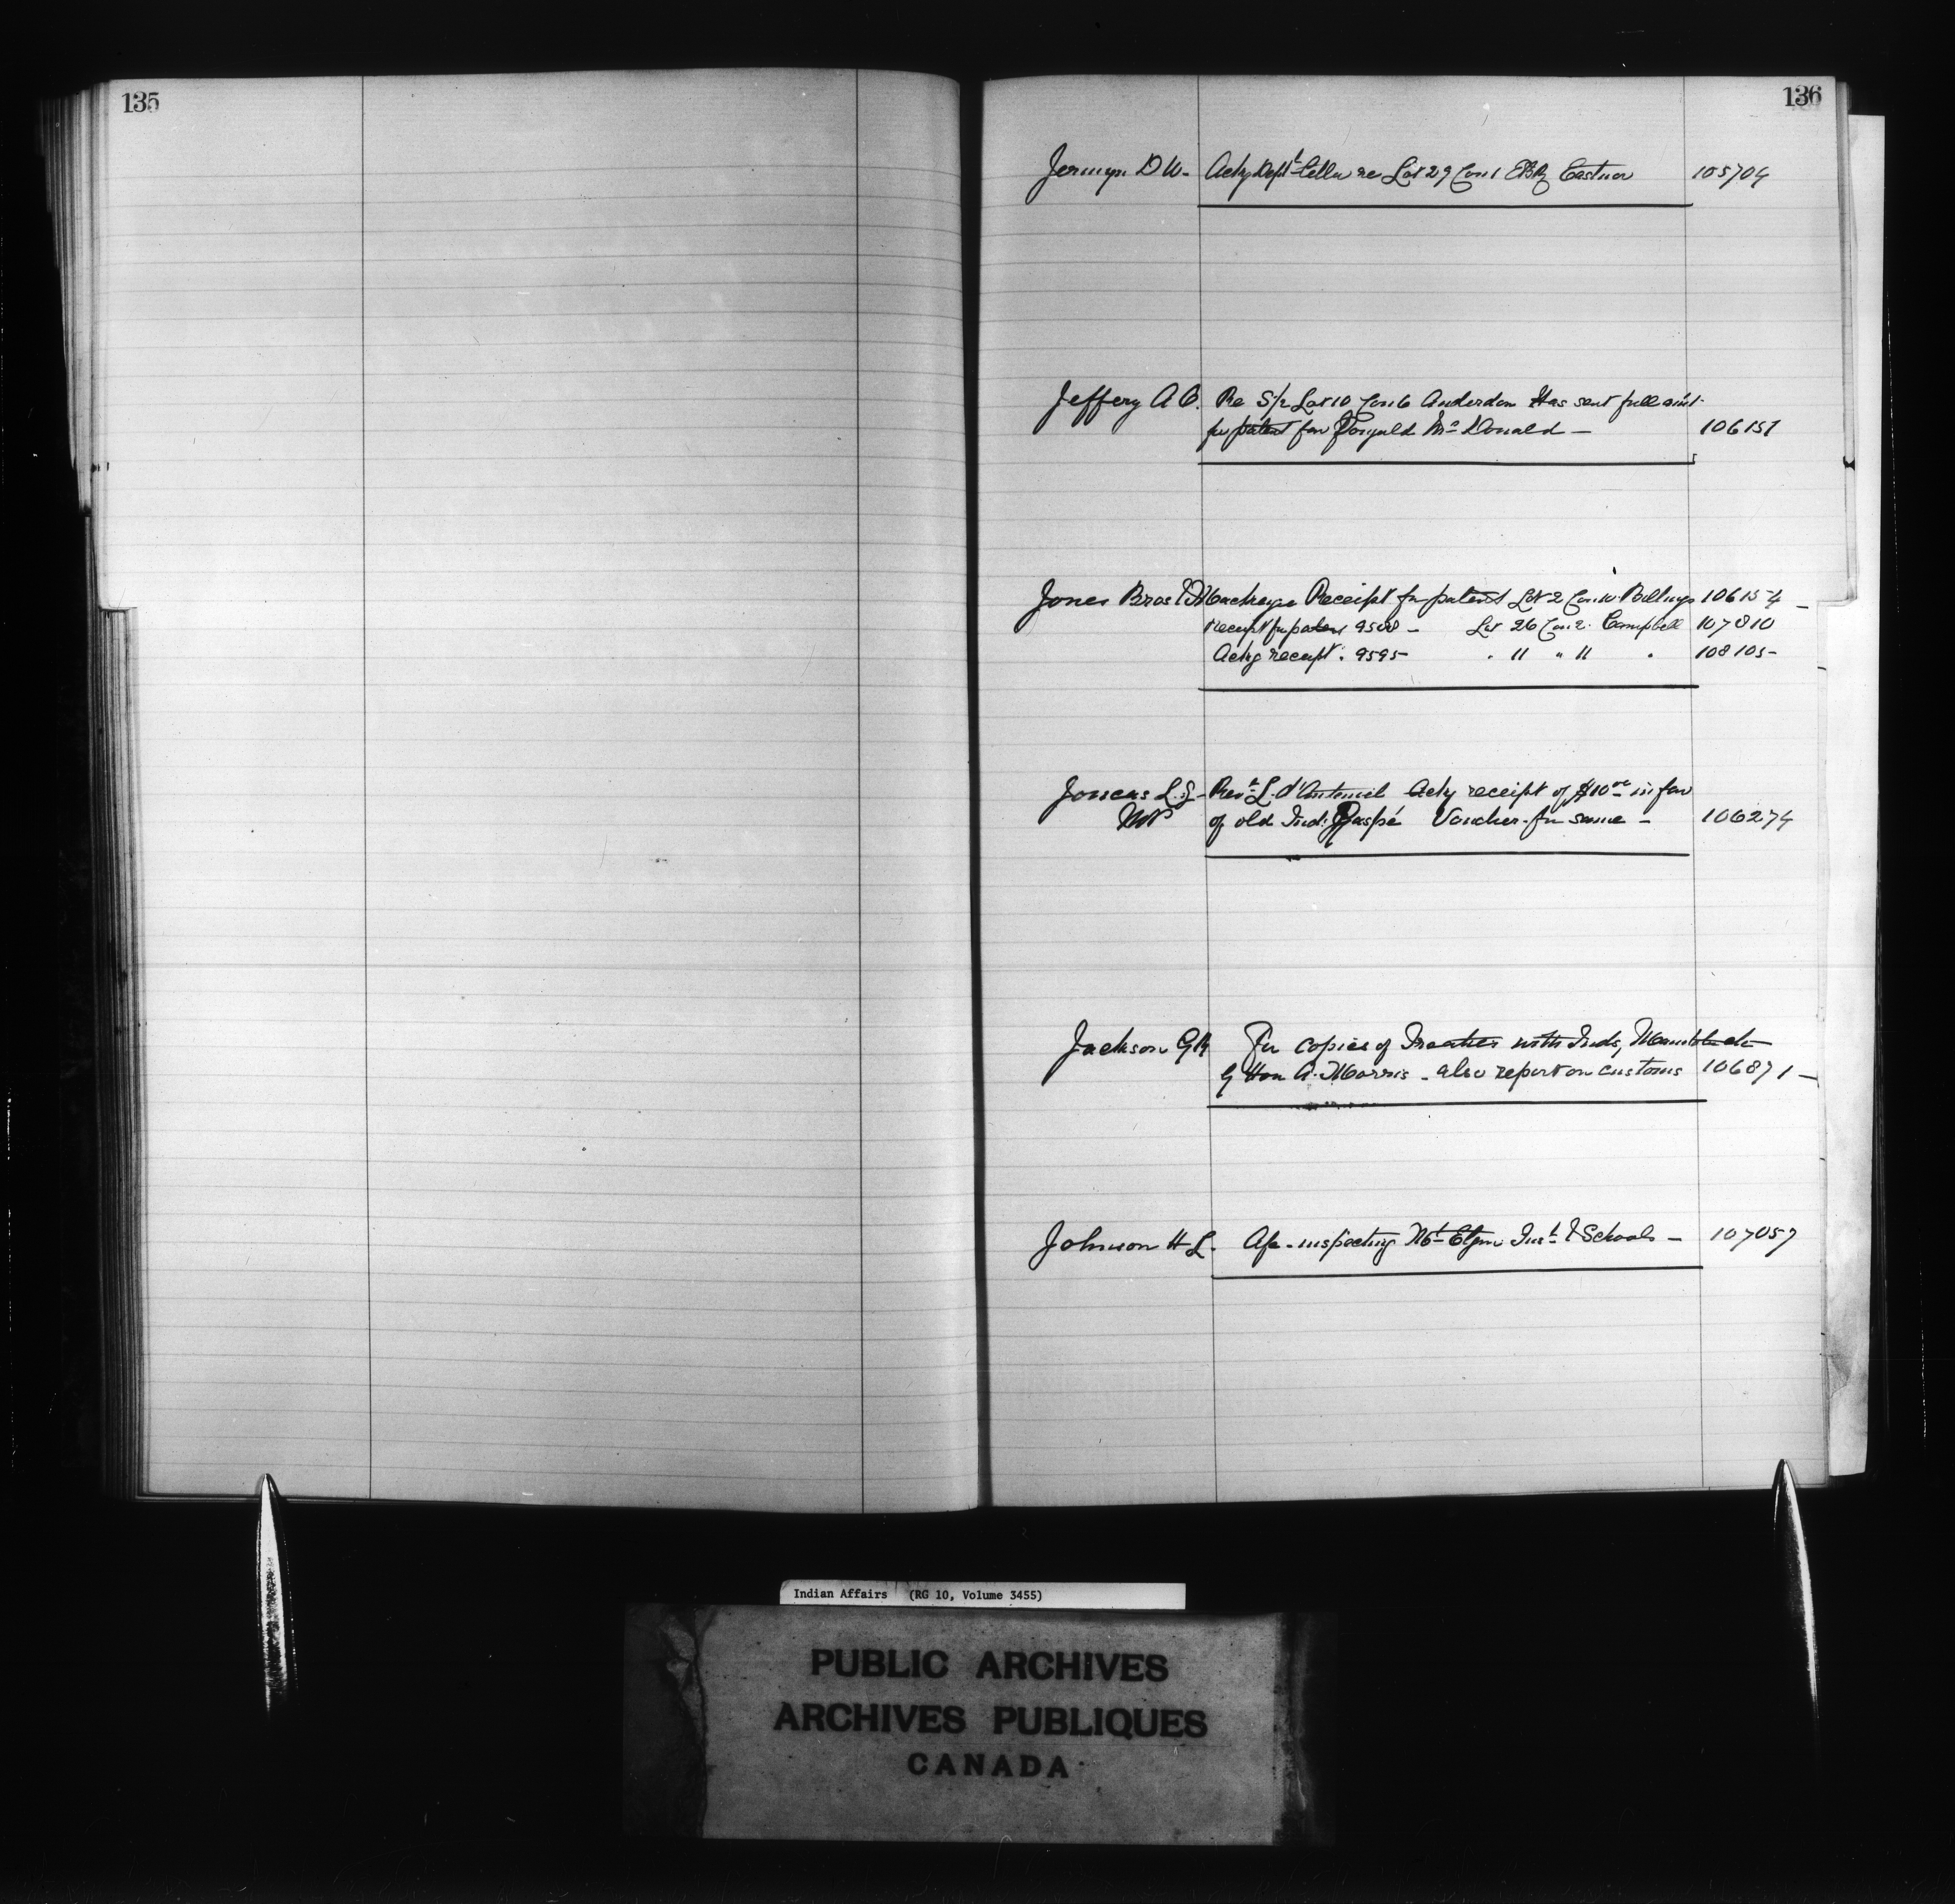 135
136
Jermyn D W- Ackg Dept Letter re Lot 29 Con 1 EBR Eastnor 105704
Jeffery A C. Re S/2 Lot 10 Con 6 Anderdon Has sent full amt
for patent for Donald McDonald - 106151
Jones Bros & Mackenzie Receipt for patent Lot 2 Con 10 Billings 106154 -
Receipt for patent 9508 - Lot 26 Con 2. Campbell 107810
Ackg receipt " 9595 - " 11 " 11 " 108105 -
Joncas L.Z- Revd L. d'Anteuil Ackg receipt of $10 00 in fav
MP of old Ind. Gaspé Voucher for same - 106274
Jackson G For copies of Treaties with Inds, Manitoba etc
by Hon A. Morris - also report on customs 106871 -
Johnson H L. A/c - inspecting Mt Elgin Inst & Schools - 107057
Indian Affairs (RG 10, Volume 3455)
PUBLIC ARCHIVES
ARCHIVES PUBLIQUES
CANADA